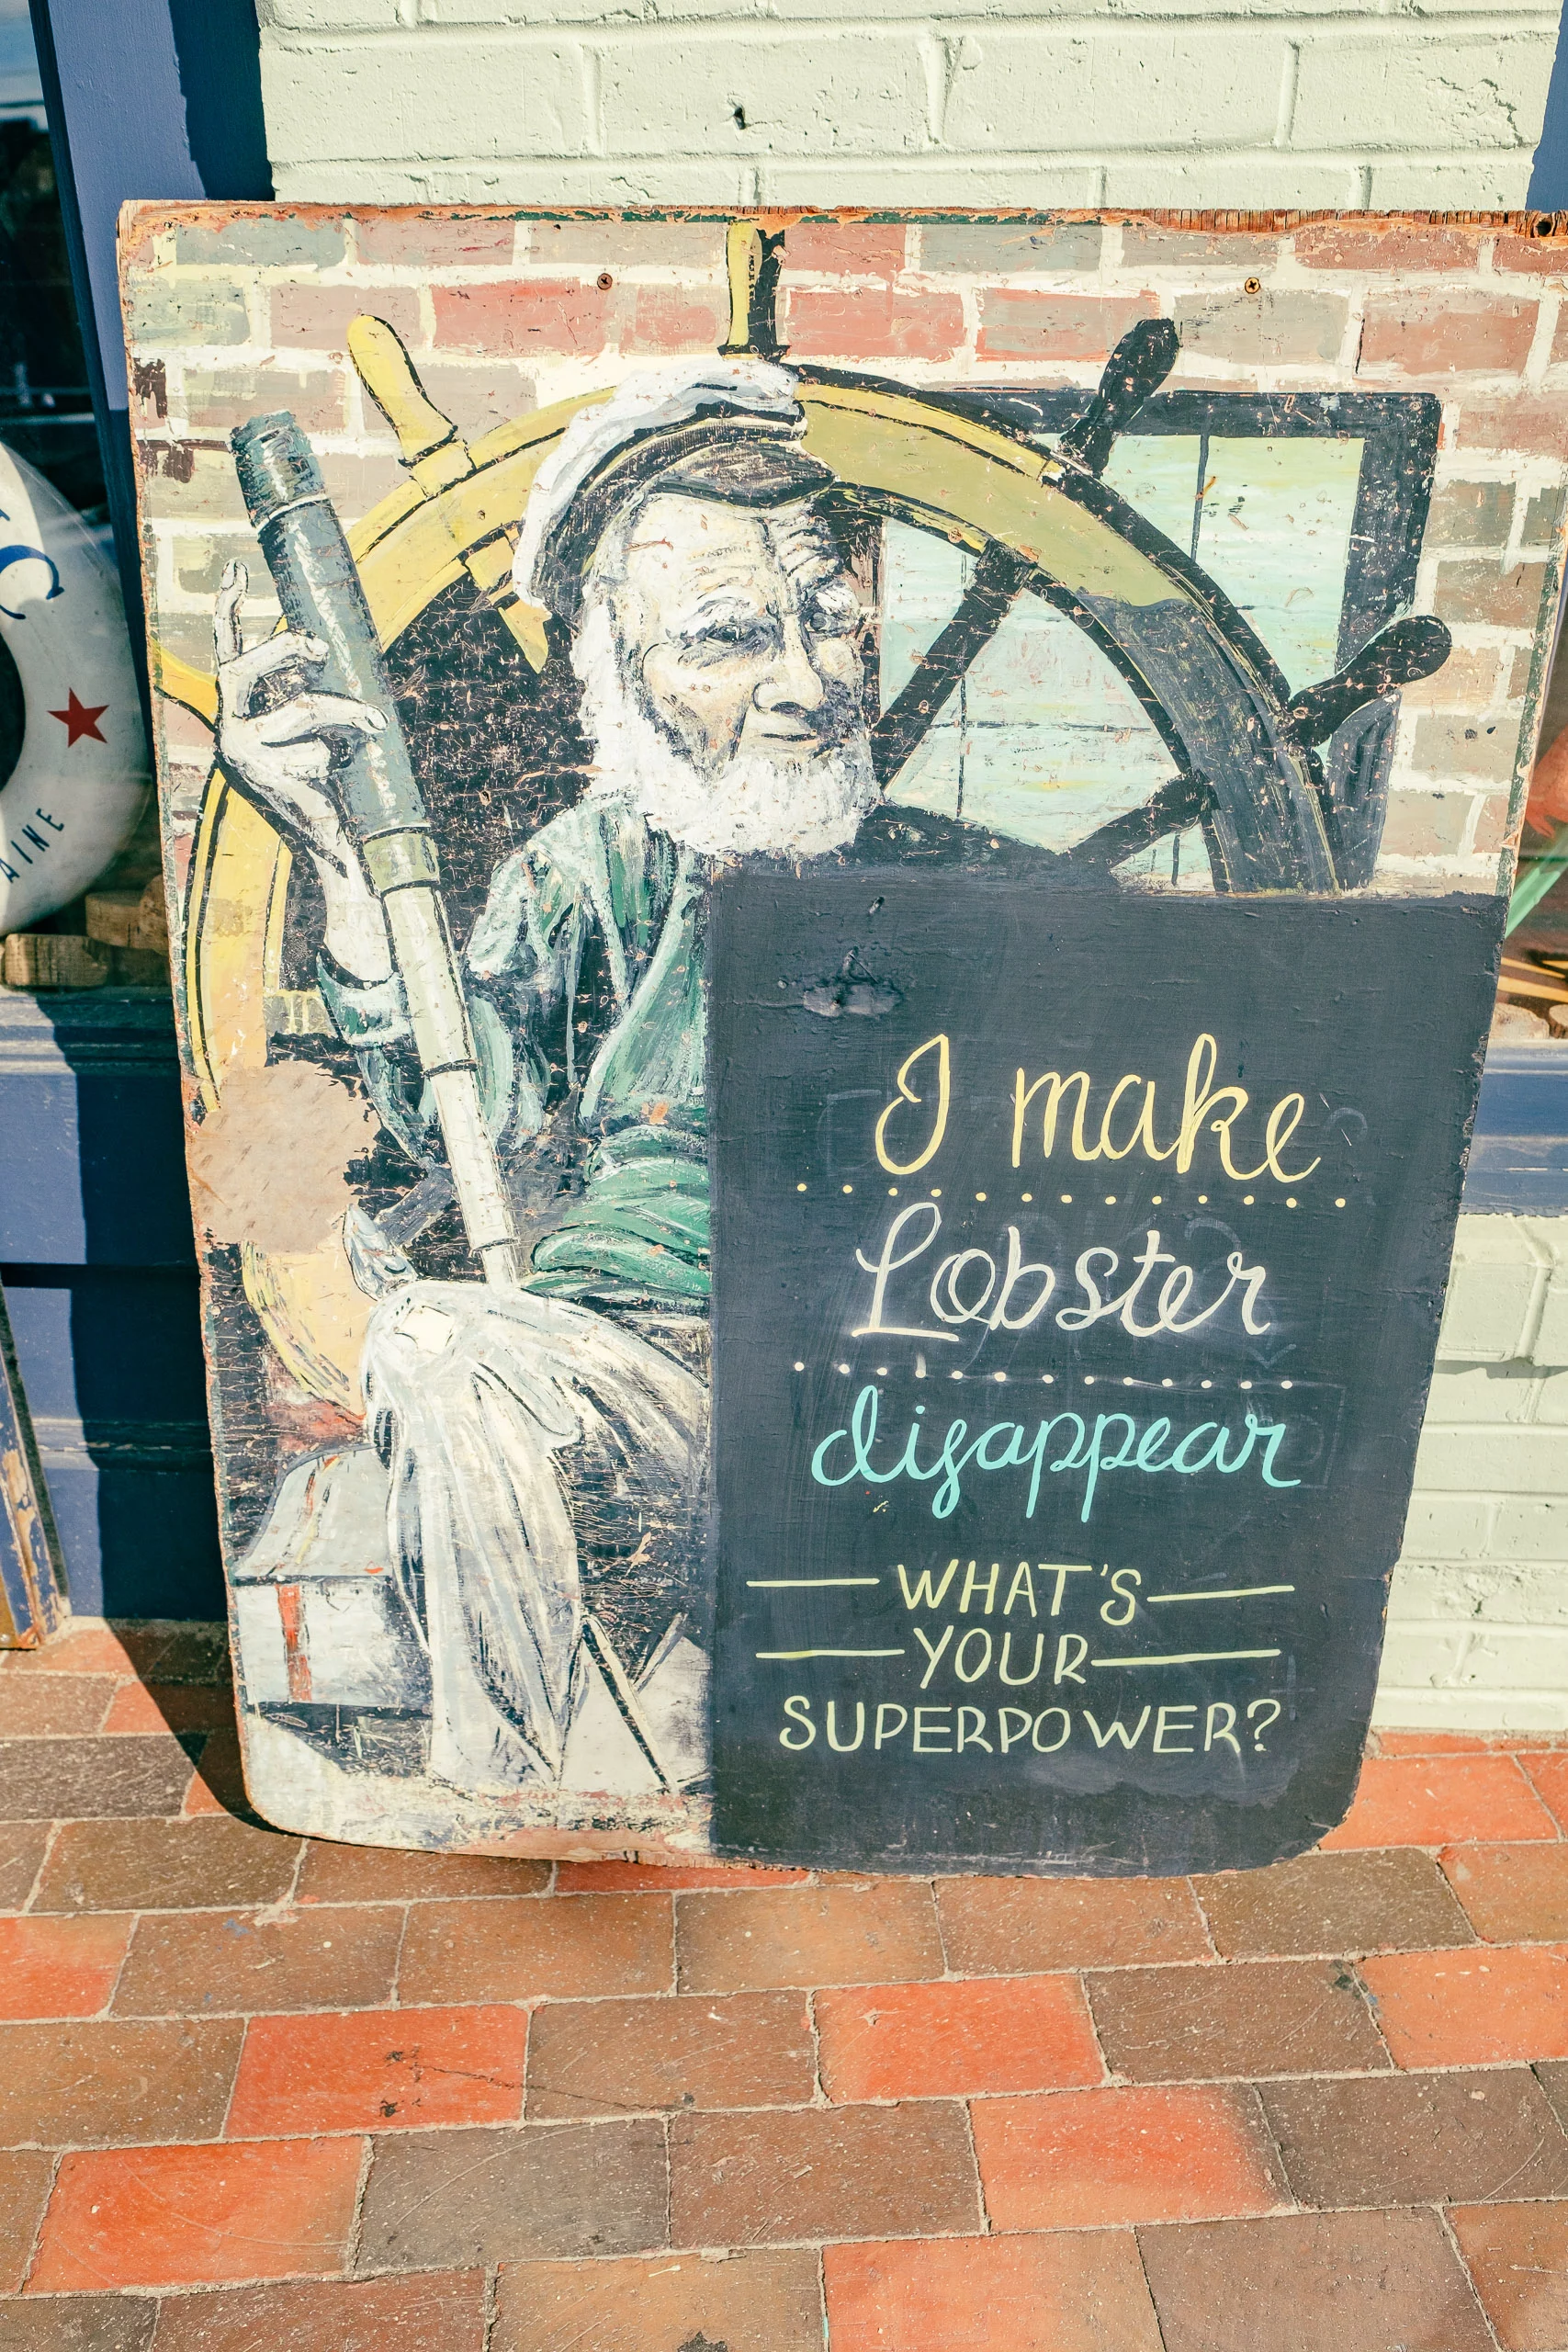 I make
Lobster
disappear
WHAT'S
YOUR
SUPERPOWER?
AINE